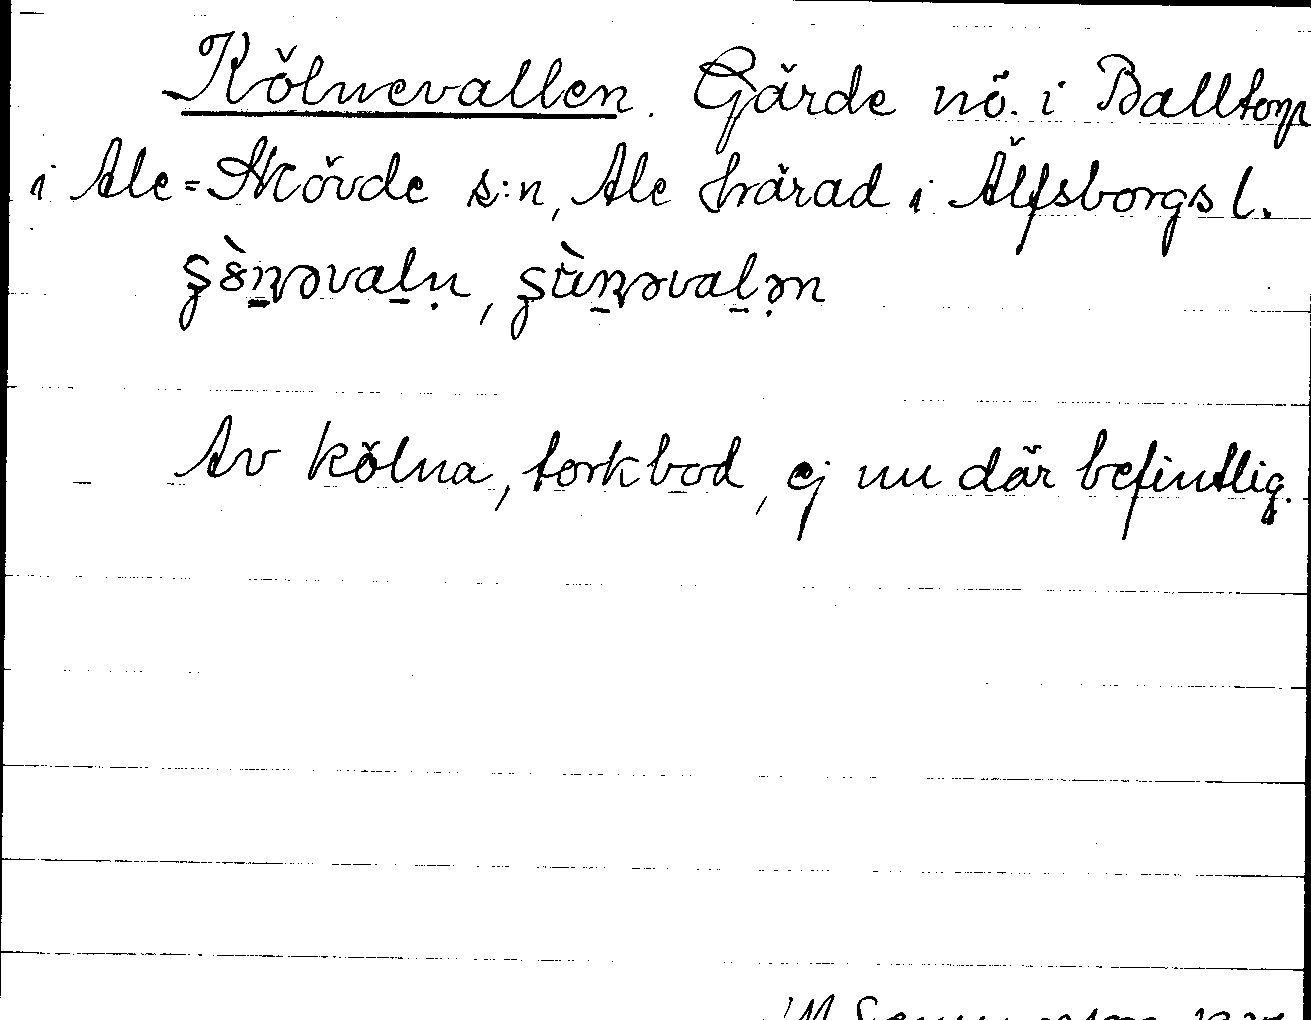 Kölnevallen. Gärde nö. i Balltorp
i Ale=Skövde s:n, Ale härad i Älfsborgs l.
Av kölna, torkbod, ej nu där befintlig.